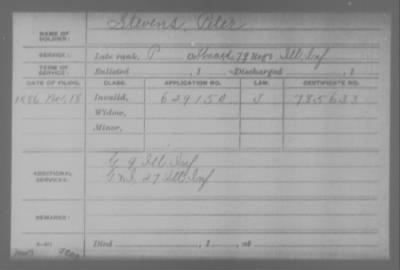 NAME OF SOLDIER: Stevens, Peter
SERVICE: Late rank, P 78 Regt Ill Inf
TERM OF SERVICE: Enlisted , 1 Discharged , 1
DATE OF FILING. CLASS. APPLICATION NO. LAW. CERTIFICATE NO.
1886 Nov. 18 Invalid, 629150 J 785633
Widow,
Minor,
ADDITIONAL SERVICES: G 9 Ill Inf
27 Ill Inf
REMARKS:
Died , 1 , at